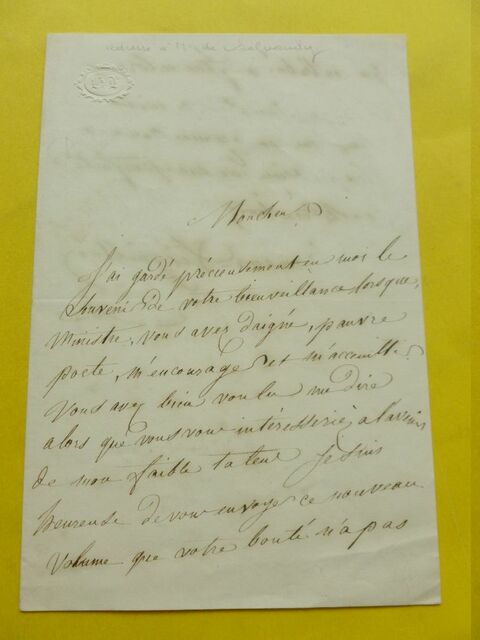 adressé à Mr de Salvandy
Monsieur
J'ai gardé précieusement en moi le
Souvenir de votre bienveillance lorsque,
Ministre, vous avez daigné, pauvre
poete, m'encourager et m'accueillir.
Vous avez bien voulu me dire
alors que vous vous intéresseriez à l'avenir
de mon faible talent. Je suis
heureuse de vous envoyer ce nouveau
volume que votre bonté n'a pas